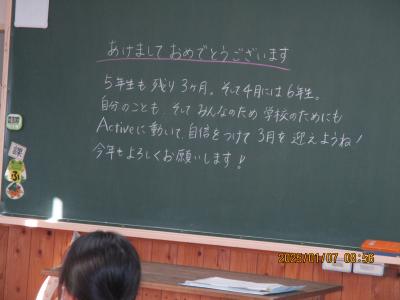 あけまして おめでとうございます
5年生も 残り 3ヶ月。そして4月には 6年生。
自分のことも そして みんなのため 学校のためにも
Activeに動いて、自信をつけて 3月を 迎えようね!
今年もよろしくお願いします!
課
ふ
2025/01/07 08:56